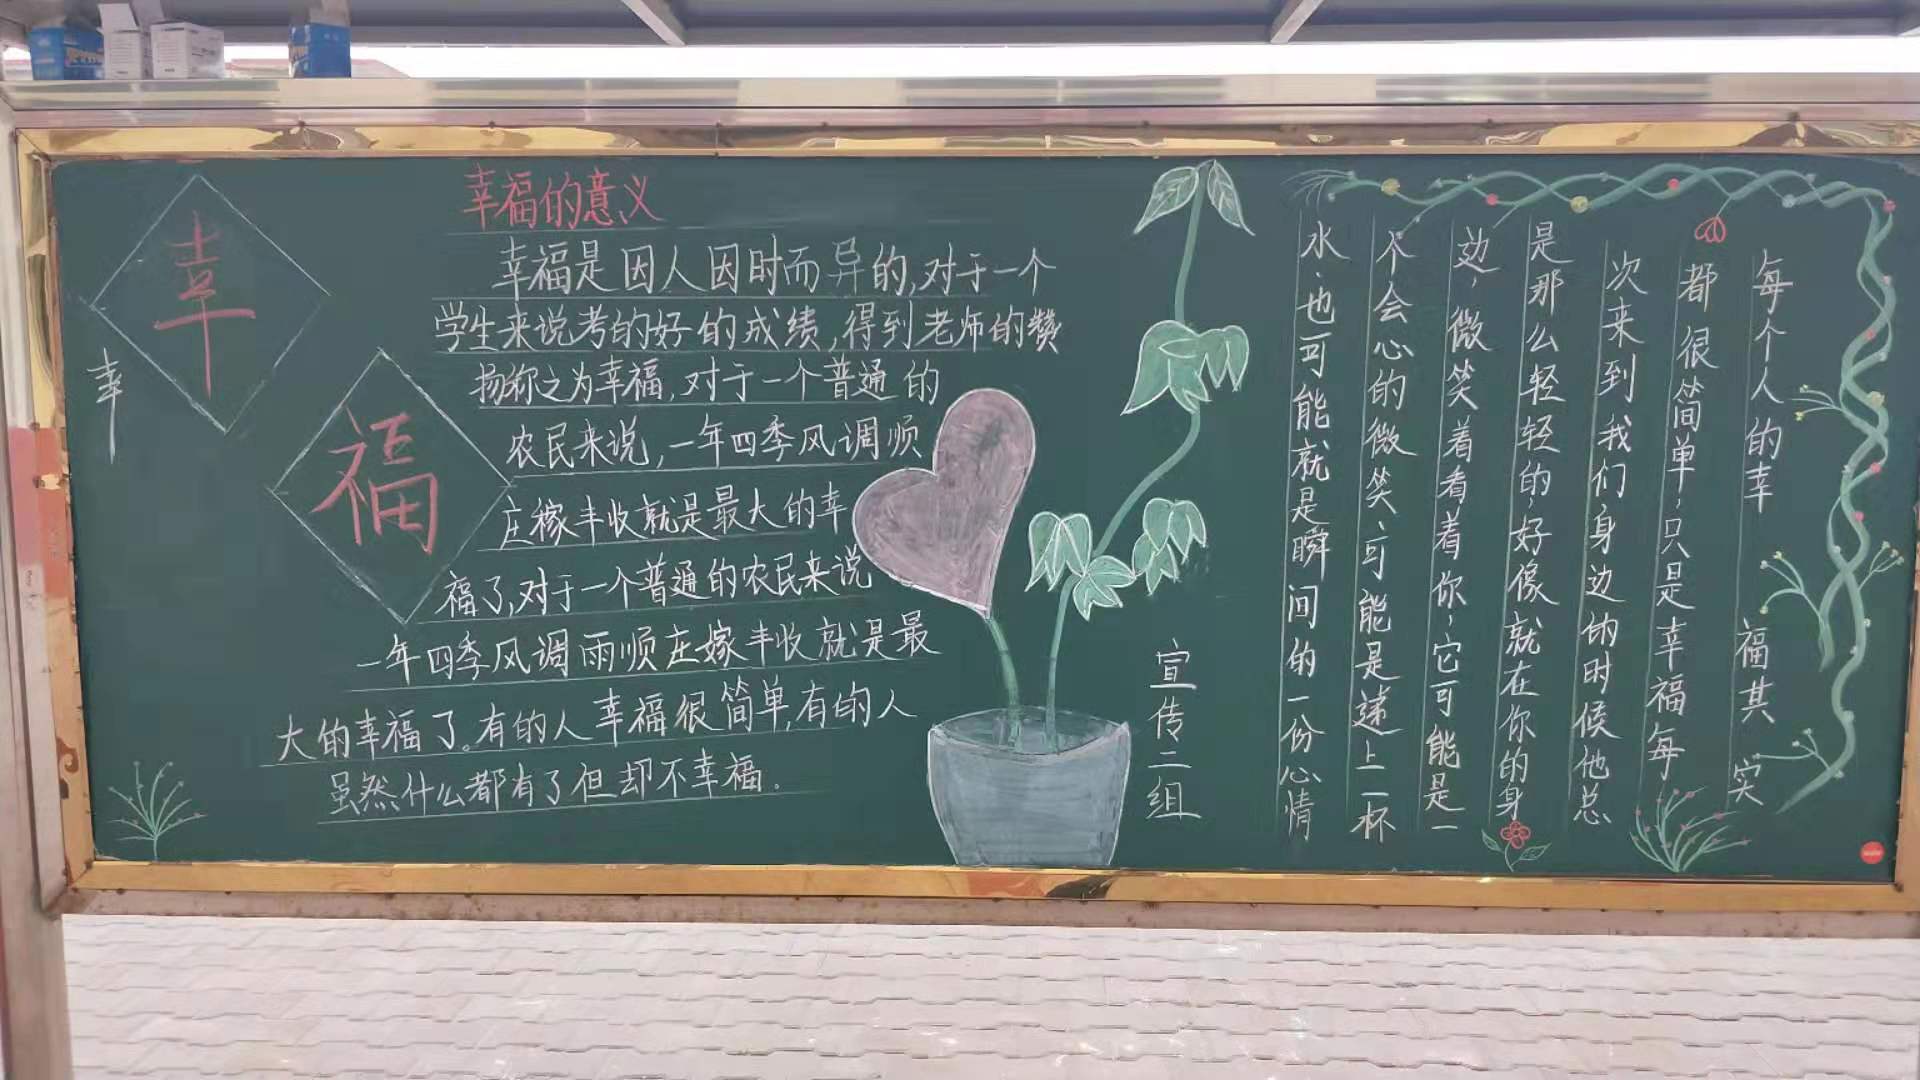 幸
福
幸
幸福的意义
幸福是因人因时而异的,对于一个
学生来说考的好的成绩,得到老师的赞
扬称之为幸福,对于一个普通的
农民来说,一年四季风调顺
庄稼丰收就是最大的幸
福了,对于一个普通的农民来说
一年四季风调雨顺庄嫁丰收就是最
大的幸福了。有的人幸福很简单,有的人
虽然什么都有了但却不幸福。
宣传二组
每个人的幸福其实
都很简单,只是幸福每
次来到我们身边的时候他总
是那么轻轻的,好像就在你的身
边,微笑着看着你,它可能是一
个会心的微笑、可能是递上一杯
水、也可能就是瞬间的一份心情